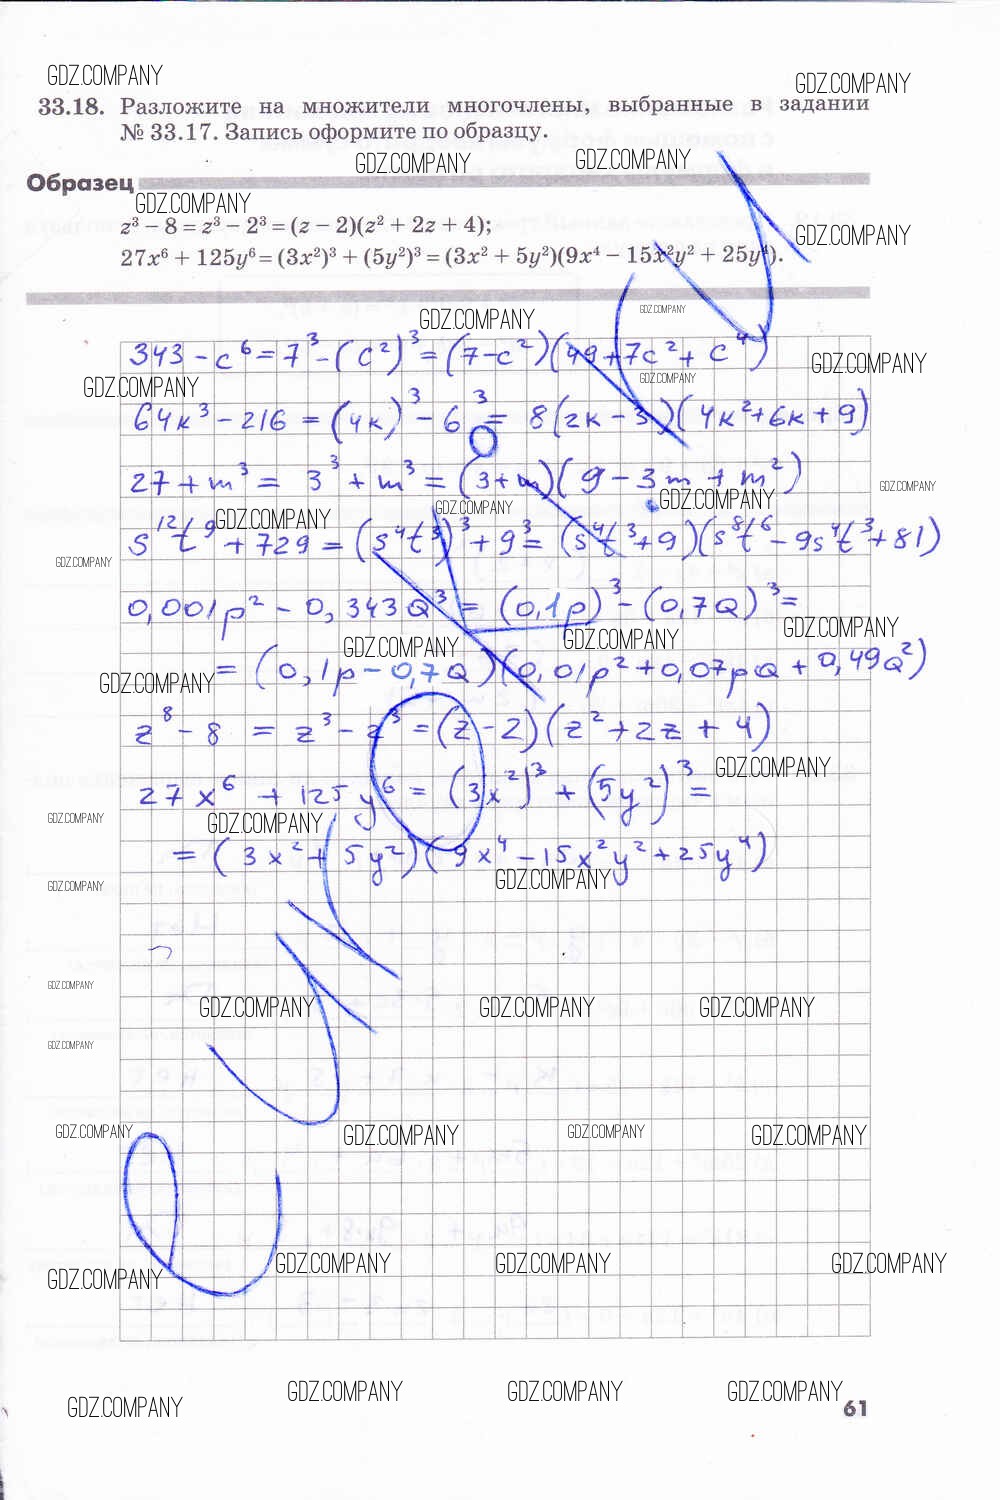 GDZ.COMPANY
GDZ.COMPANY
33.18. Разложите на множители многочлены, выбранные в задании
№ 33.17. Запись оформите по образцу.
GDZ.COMPANY GDZ.COMPANY
Образец
GDZ.COMPANY
z³ − 8 = z³ − 2³ = (z − 2)(z² + 2z + 4);
GDZ.COMPANY
27x⁶ + 125y⁶ = (3x²)³ + (5y²)³ = (3x² + 5y²)(9x⁴ − 15x²y² + 25y⁴).
GDZ.COMPANY GDZ.COMPANY
343 − c⁶ = 7³ − (c²)³ = (7 − c²)(49 + 7c² + c⁴)
GDZ.COMPANY GDZ.COMPANY GDZ.COMPANY
64k³ − 216 = (4k)³ − 6³ = 8(2k − 3)(4k² + 6k + 9)
27 + m³ = 3³ + m³ = (3 + m)(9 − 3m + m²)
GDZ.COMPANY GDZ.COMPANY
GDZ.COMPANY GDZ.COMPANY
s¹²t⁹ + 729 = (s⁴t³)³ + 9³ = (s⁴t³ + 9)(s⁸t⁶ − 9s⁴t³ + 81)
GDZ.COMPANY
0,001p² − 0,343Q³ = (0,1p)³ − (0,7Q)³ =
GDZ.COMPANY GDZ.COMPANY GDZ.COMPANY
= (0,1p − 0,7Q)(0,01p² + 0,07pQ + 0,49Q²)
GDZ.COMPANY
z⁸ − 8 = z³ − z³ = (z − 2)(z² + 2z + 4)
GDZ.COMPANY
27x⁶ + 125y⁶ = (3x²)³ + (5y²)³ =
GDZ.COMPANY GDZ.COMPANY
= (3x² + 5y²)(9x⁴ − 15x²y² + 25y⁴)
GDZ.COMPANY GDZ.COMPANY
GDZ.COMPANY
GDZ.COMPANY GDZ.COMPANY GDZ.COMPANY
GDZ.COMPANY
GDZ.COMPANY GDZ.COMPANY GDZ.COMPANY GDZ.COMPANY
GDZ.COMPANY GDZ.COMPANY GDZ.COMPANY GDZ.COMPANY
GDZ.COMPANY GDZ.COMPANY GDZ.COMPANY GDZ.COMPANY
61